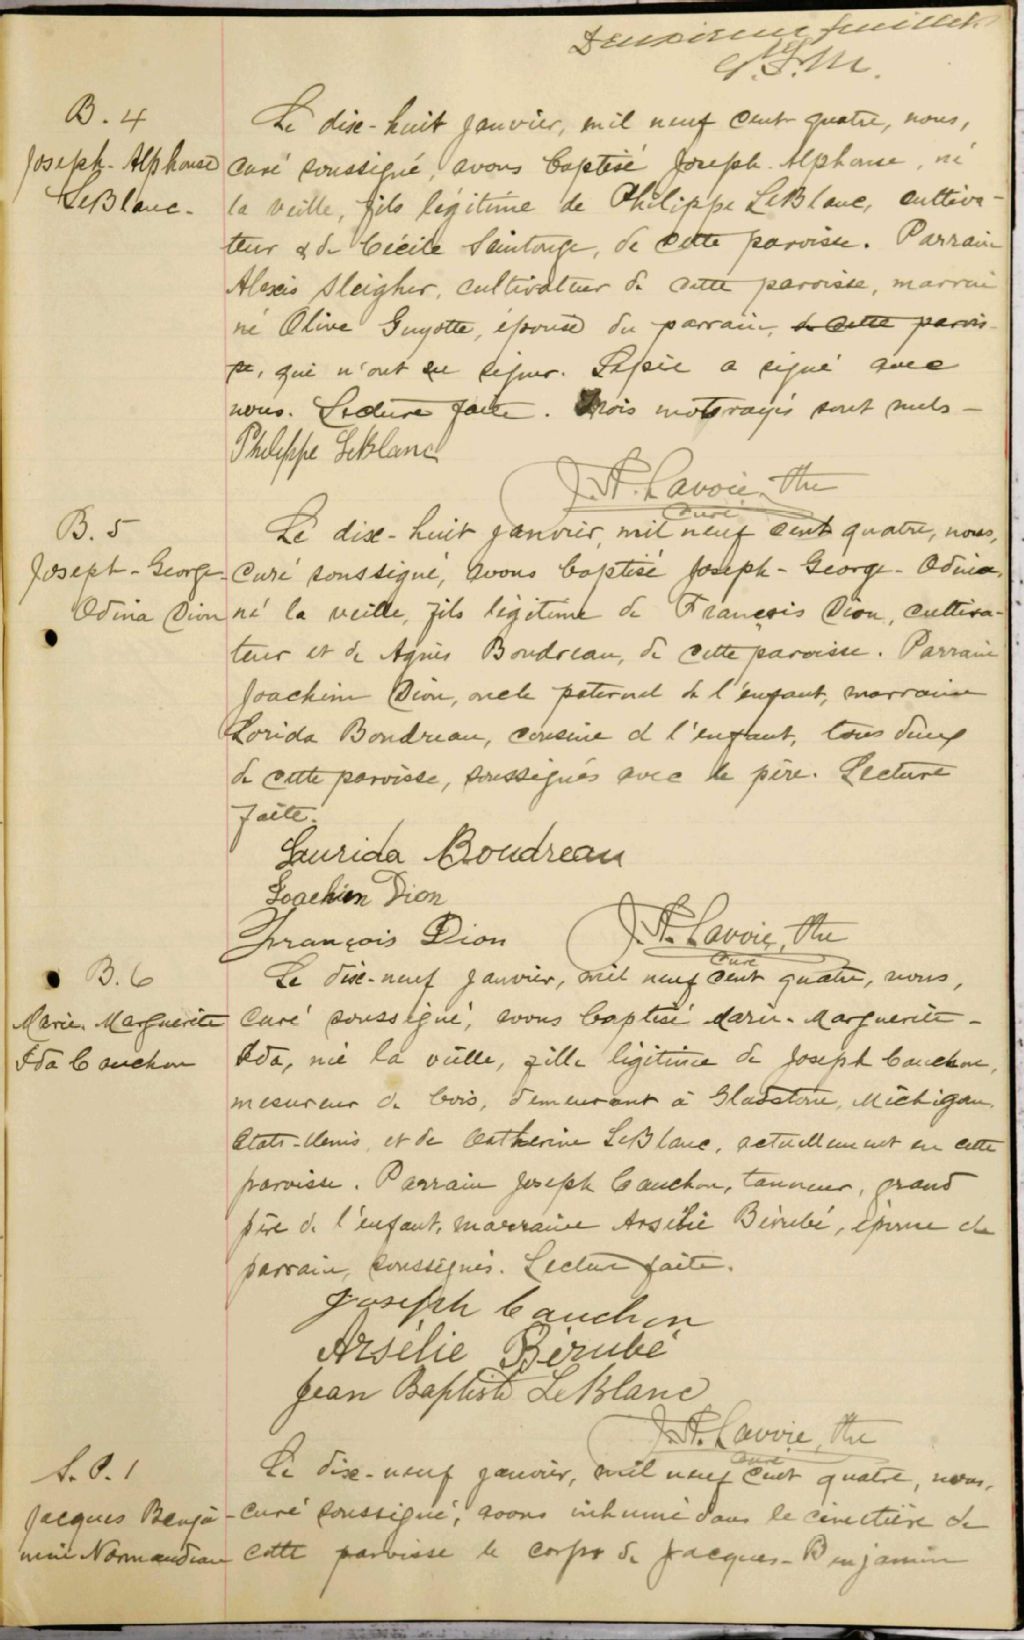 Deuxième feuillet.
B. 4
Joseph-Alphonse
LeBlanc.
Le dix-huit janvier, mil neuf cent quatre, nous,
curé soussigné, avons baptisé Joseph Alphonse, né
la veille, fils légitime de Philippe LeBlanc, cultiva-
teur & de Cécile Saintonge, de cette paroisse. Parrain
Alexis Sleigher, cultivateur de cette paroisse, marrai
né Olive Guyotte, épouse du parrain, de cette parois-
se, qui n'ont su signer. Le père a signé avec
nous. Lecture faite. Trois mots rayés sont nuls -
Philippe LeBlanc
J. A. Lavoie, Ptre
Curé
B. 5
Joseph-George-
Odina Dion
Le dix-huit janvier, mil neuf cent quatre, nous,
curé soussigné, avons baptisé Joseph-George-Odina,
né la veille, fils légitime de François Dion, cultiva-
teur et de Agnès Boudreau, de cette paroisse. Parrain
Joachim Dion, oncle paternel de l'enfant, marraine
Lorida Boudreau, cousine d l'enfant, tous deux
de cette paroisse, soussignés avec le père. Lecture
faite.
Laurida Boudreau
Joachim Dion
François Dion
J. A. Lavoie, Ptre
Curé
B. 6
Marie Marguerite
Ida Cauchon
Le dix-neuf janvier, mil neuf cent quatre, nous,
curé soussigné, avons baptisé Marie-Marguerite-
Ida, née la veille, fille légitime de Joseph Cauchon,
mesureur de bois, demeurant à Gladstone, Michigan,
Etats-Unis, et de Catherine LeBlanc, actuellement en cette
paroisse. Parrain Joseph Cauchon, tanneur, grand
père de l'enfant, marraine Arsélie Bérubé, épouse du
parrain, soussignés. Lecture faite.
Joseph Cauchon
Arsélie Bérubé
Jean Baptiste LeBlanc
J. A. Lavoie, Ptre
Curé
S. P. 1
Jacques Benja-
min Normandeau
Le dix-neuf janvier, mil neuf cent quatre, nous,
curé soussigné, avons inhumé dans le cimetière de
cette paroisse le corps de Jacques-Benjamin